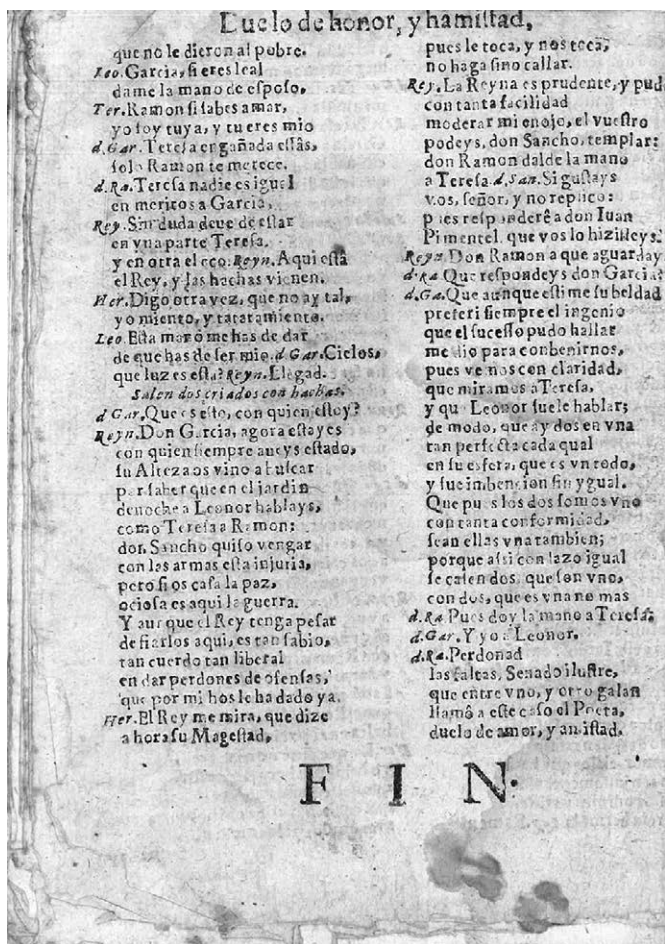 Duelo de honor, y hamistad,
que no le dieron al pobre.
Leo. Garcia, si eres leal
dame la mano de esposo,
Ter. Ramon si sabes amar,
yo soy tuya, y tu eres mio
d. Gar. Teresa engañada estâs,
solo Ramon te merece.
d. Ra. Teresa nadie es igual
en meritos a Garcia,
Rey. Sin duda deue de estar
en vna parte Teresa,
y en otra el eco: Reyn. Aqui està
el Rey, y las hachas vienen.
Her. Digo otra vez, que no ay tal,
yo miento, y tataramiento.
Leo. Esta manó me has de dar
de que has de ser mio. d Gar. Cielos,
que luz es esta? Reyn. Llegad.
Salen dos criados con hachas.
d Gar. Que es esto, con quien estoy?
Reyn. Don Garcia, agora estayes
con quien siempre aueys estado,
su Alteza os vino a buscar
por saber que en el jardin
de noche a Leonor hablays,
como Teresa a Ramon:
don Sancho quiso vengar
con las armas esta injuria,
pero si os casa la paz,
ociosa es aqui la guerra.
Y aunque el Rey tenga pesar
de fiarlos aqui, es tan sabio,
tan cuerdo tan liberal
en dar perdones de ofensas,
que por mi hos le ha dado ya.
Her. El Rey me mira, que dize
ahora su Magestad,
pues le toca, y nos toca,
no haga sino callar.
Rey. La Reyna es prudente, y pud
con tanta facilidad
moderar mi enojo, el vuestro
podeys, don Sancho, templar:
don Ramon dalde la mano
a Teresa. d. San. Si gustays
vos, señor, y no replico:
pues responderê a don Iuan
Pimentel, que vos lo hizisteys.
Reyn. Don Ramon a que aguarday
d. Ra. Que respondeys don Garcia?
d. Ga. Que aunque estime su beldad
preferi siempre el ingenio
que el sucesso pudo hallar
medio para conbenirnos,
pues venos con claridad,
que miramos a Teresa,
y qu Leonor suele hablar;
de modo, que ay dos en vna
tan perfecta cada qual
en su esfera, que es vn todo,
y fue inbencion sin ygual.
Que pues los dos somos vno
con tanta conformidad,
sean ellas vna tambien;
porque assi con lazo igual
se casen dos, que son vno,
con dos, que es vna no mas
d. Ra. Pues doy la mano a Teresa.
d. Gar. Y yo a Leonor.
d. Ra. Perdonad
las faltas, Senado ilustre,
que entre vno, y otro galan
llamô a este caso el Poeta,
duelo de amor, y amistad.
FIN.